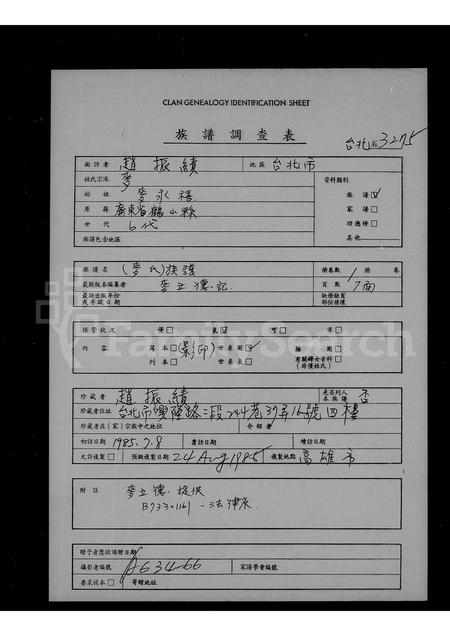 CLAN GENEALOGY IDENTIFICATION SHEET
族譜調查表
台北 3275
面訪者 趙振績 地區 台北市
姓氏宗派 麥 資料類別
始祖 麥永禧 族譜☑
原籍 廣東省鶴山縣 家譜☐
世代 6代 功德榜☐
族譜包含地區 其他
族譜名 (麥氏)族譜 冊卷數 1 冊 卷
最新版本編纂者 麥立德.記 頁數 7面
最新出版年份
或序跋日期
缺冊缺頁
部份損壞
保管狀況 優☐ 良☑ 可☐ 劣☐
內容 寫本☐(影印) 世系圖☑ 插圖☐
刊本☐ 世系表☐ 有關婦女資料☐
(非僅姓氏)
珍藏者 趙振績 是否列入本族譜 否
珍藏者住址 台北市興隆路二段244巷37弄16號四樓
珍藏者在(家)宗族中之地位 介紹者
初訪日期 1985.7.8 覆訪日期 續訪日期
允許複製☐ 預擬複製日期 24 Aug 1985 複製地點 高雄市
附註 麥立德.提供
贈子者獎狀頒贈日期
攝影者編號 A634-66 家譜學會編號
要求複本☐ 寄贈地址
FamilySearch